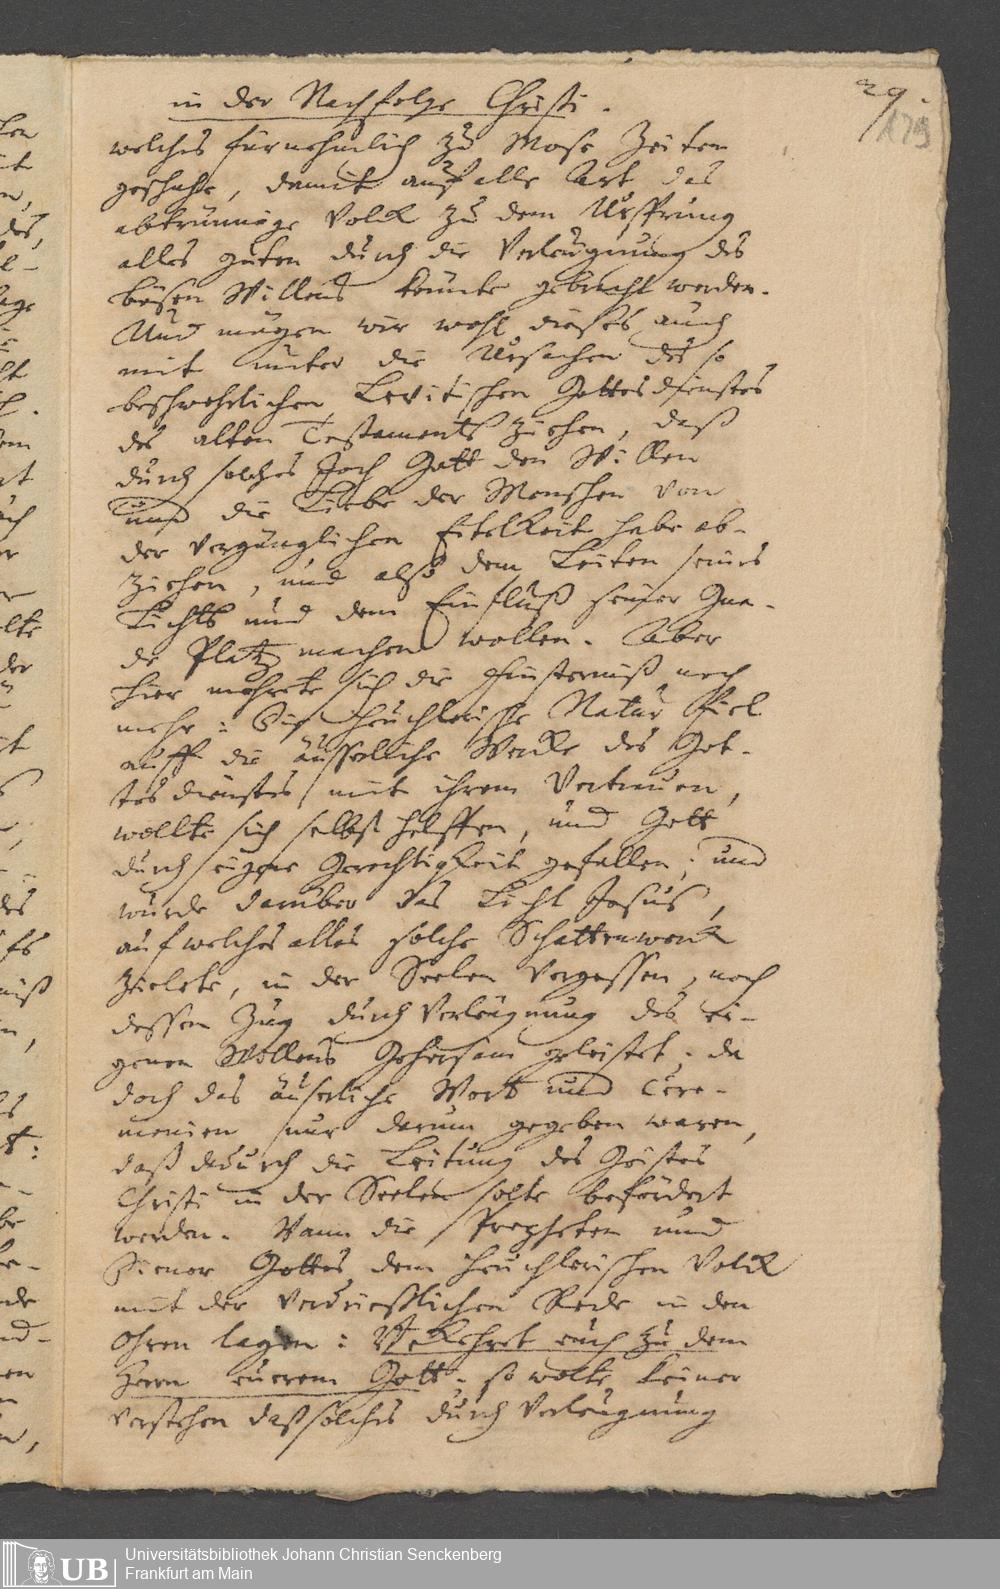 in der Nachfolge Christi.
29.
179
welches fürnehmlich zu Mose Zeiten
geschahe, damit auf alle Art das
abtrünnige Volck zu dem Ursprung
alles guten durch die Verleugnung des
bösen Willens könnte gebracht werden.
Und mögen wir wohl dieses auch
mit unter die Ursachen des so
beschwehrlichen Levitischen Gottesdienstes
des alten Testaments ziehen, daß
durch solches Joch Gott den Willen
und die Liebe der Menschen von
der vergänglichen Eitelkeit habe ab-
ziehen, und also dem Leiten seines
Lichts und dem Einfluß seiner Gna-
de Platz machen wollen. Aber
hier mehrete sich die Finsterniß noch
mehr: Die heuchlerische Natur fiel
auff die äusserliche Wercke des Got-
tesdienstes mit ihrem Vertrauen,
wollte sich selbst helffen, und Gott
durch eigene Gerechtigkeit gefallen; und
wurde darüber das Licht Jesus,
auf welches alles solche Schattenwerck
zielete, in der Seelen vergessen, noch
dessen Zug durch Verleugnung des ei-
genen Wollens Gehorsam geleistet, da
doch das äuserliche Wort und Cere-
monien nur darum gegeben waren,
daß dadurch die Leitung des Geistes
Christi in der Seelen solte befördert
werden. Wann die Propheten und
Diener Gottes dem heuchlerischen Volck
mit der verdrießlichen Rede in den
Ohren lagen: Bekehret euch zu dem
Herrn euerem Gott. so wolte keiner
verstehen daß solches durch Verleugnung
UB
Universitätsbibliothek Johann Christian Senckenberg
Frankfurt am Main